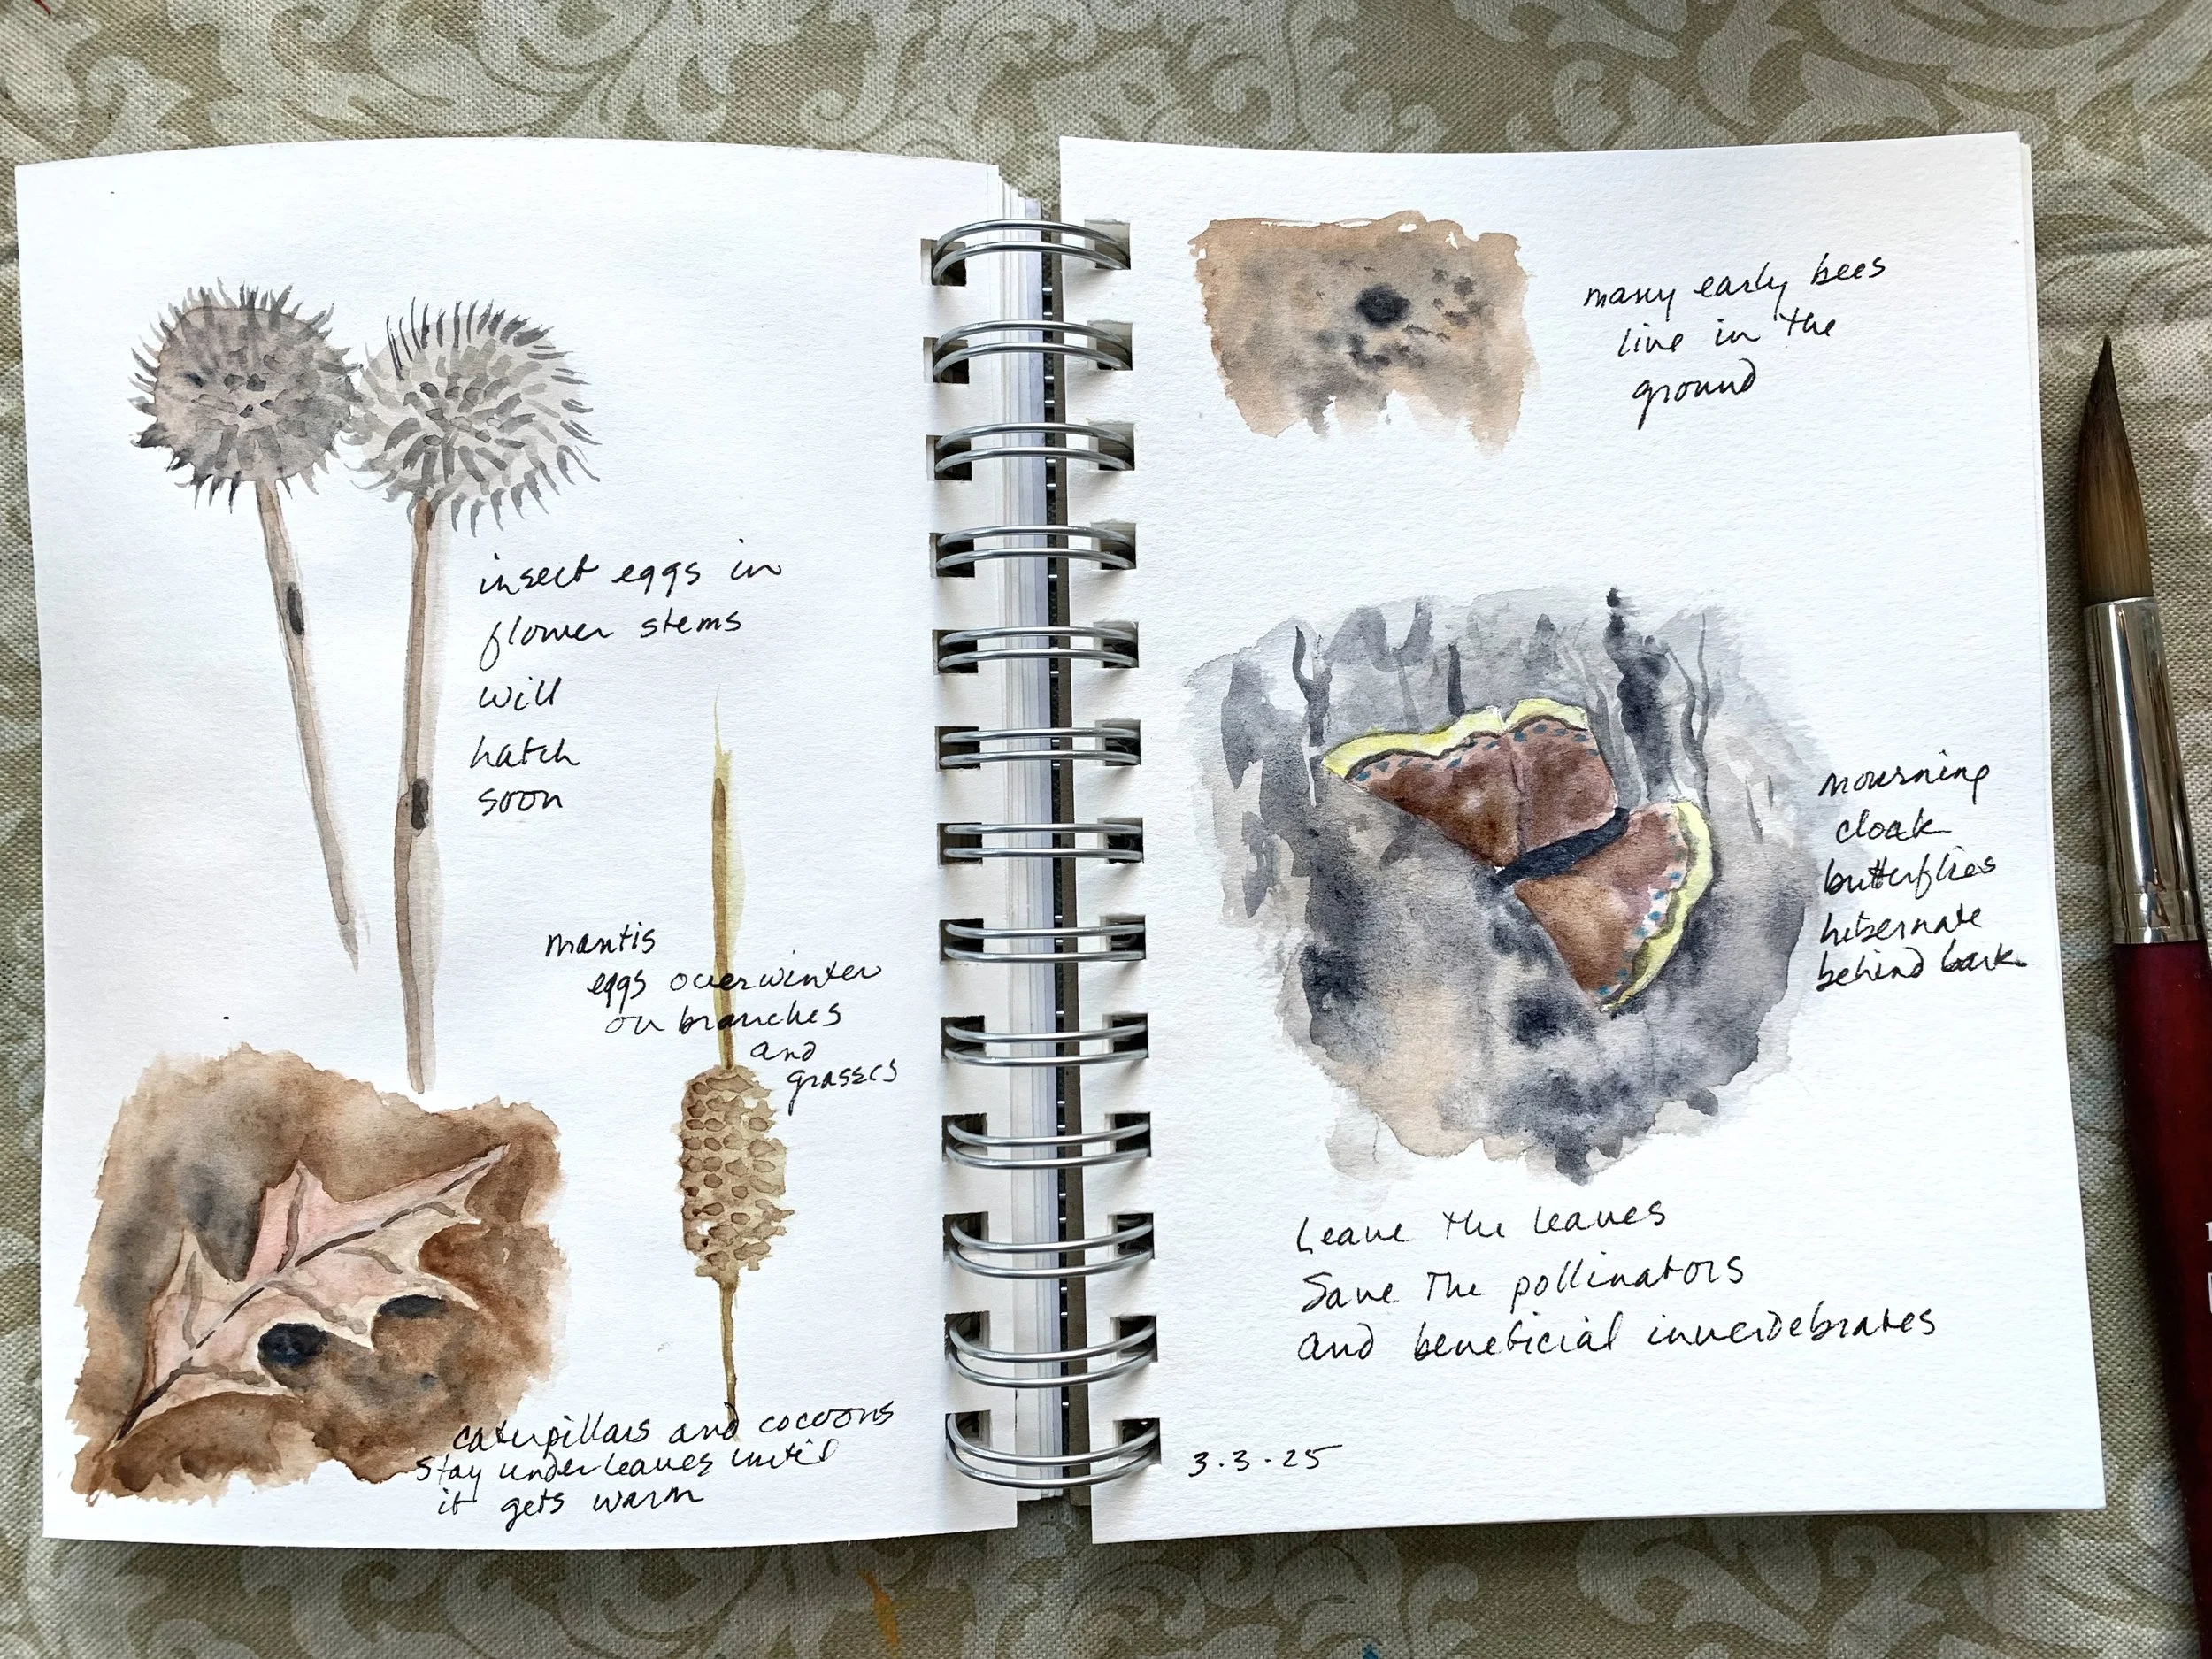 insect eggs in
flower stems
will
hatch
soon
mantis
eggs overwinter
on branches
and
grasses
caterpillars and cocoons
stay under leaves until
it gets warm
many early bees
live in the
ground
mourning
cloak
butterflies
hibernate
behind bark
Leave the leaves
Save The pollinators
and beneficial inverdebrates
3.3.25